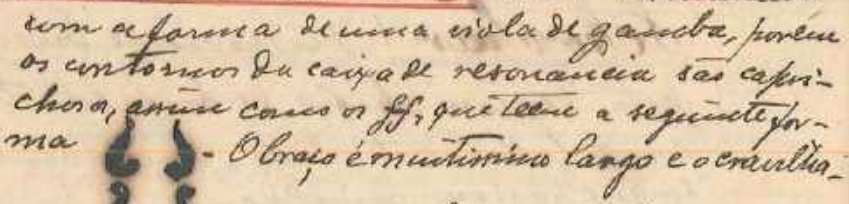 com a forma de uma viola de gamba, porém
os contornos da caixa de resonancia são capri-
chosos, assim como os ff, que teem a seguinte for-
ma - O braço é muitissimo largo e o cravelha-